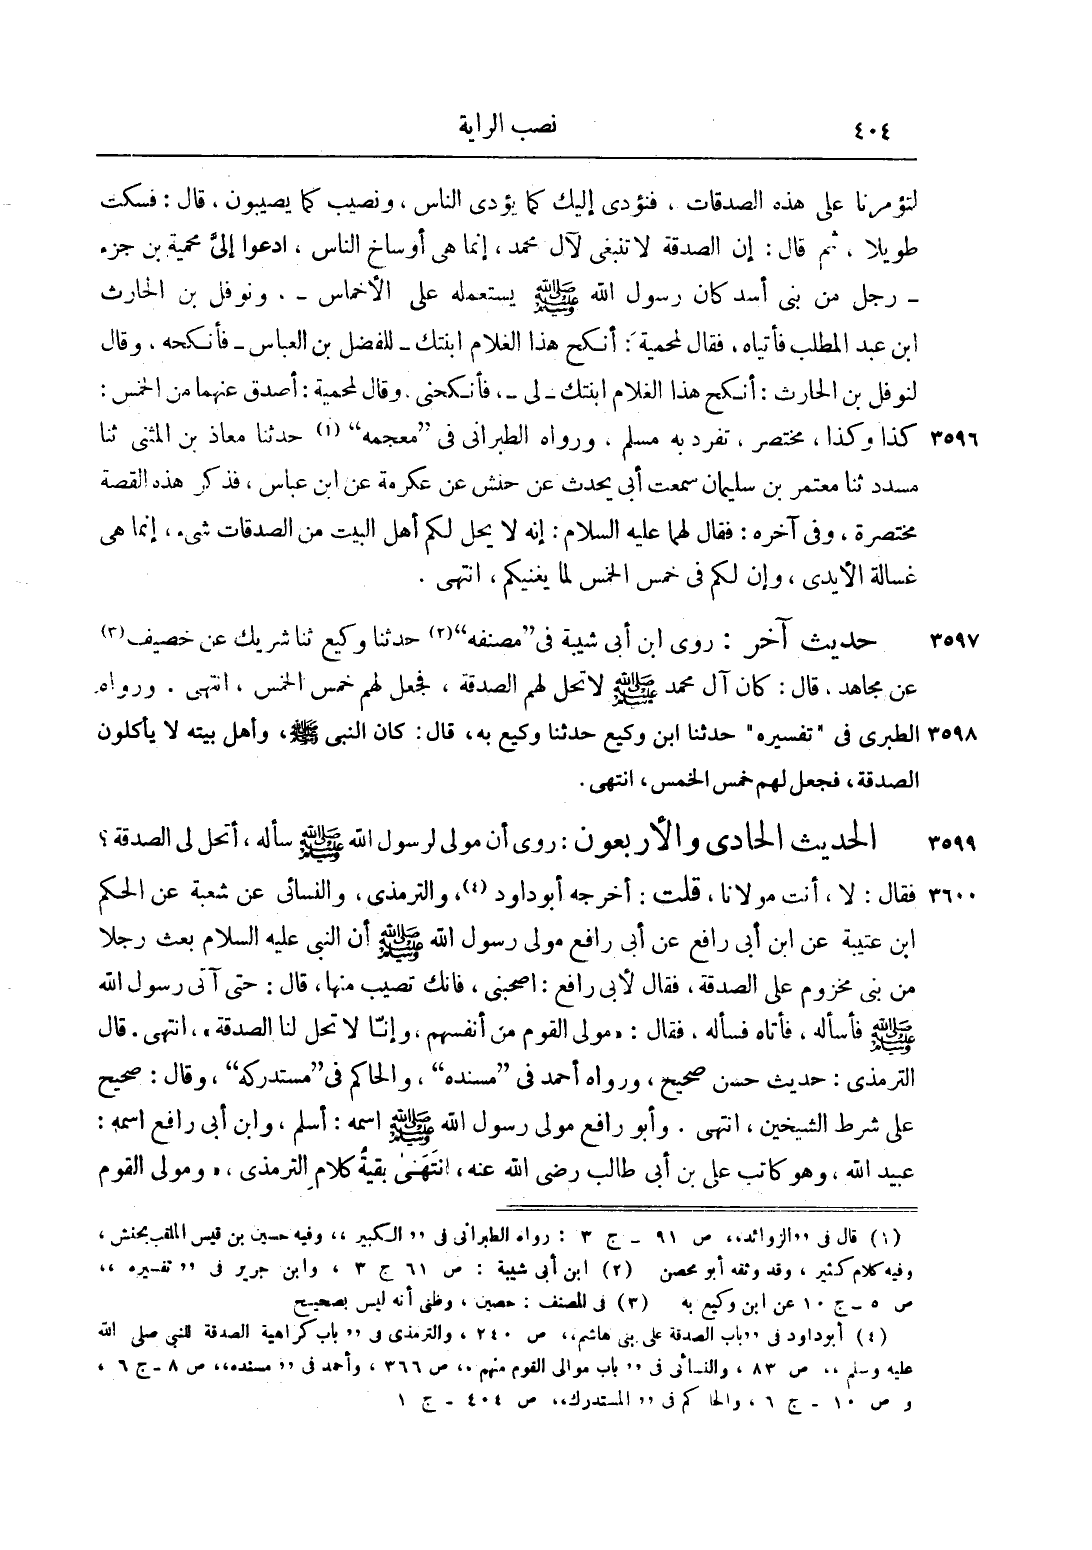 ٤٠٤ نصب الراية
لتؤمرنا على هذه الصدقات ، فنؤدى إليك كما يؤدى الناس ، ونصيب كما يصيبون ، قال : فسكت
طويلا ، ثم قال : إن الصدقة لا تنبغى لآل محمد ، إنما هى أوساخ الناس ، ادعوا إلىَّ محمية بن جزء
ـ رجل من بنى أسد كان رسول الله ﷺ يستعمله على الأخماس ـ ، ونوفل بن الحارث
ابن عبد المطلب فأتياه ، فقال لمحمية : أنكح هذا الغلام ابنتك ـ للفضل بن العباس ـ فأنكحه ، وقال
لنوفل بن الحارث : أنكح هذا الغلام ابنتك ـ لى ـ ، فأنكحنى . وقال لمحمية : أصدق عنهما من الخمس :
٣٥٩٦ كذا وكذا ، مختصر ، تفرد به مسلم . ورواه الطبرانى فى ”معجمه“ (١) حدثنا معاذ بن المثنى ثنا
مسدد ثنا معتمر بن سليمان سمعت أبى يحدث عن حنش عن عكرمة عن ابن عباس ، فذكر هذه القصة
مختصرة ، وفى آخره : فقال لهما عليه السلام : إنه لا يحل لكم أهل البيت من الصدقات شىء ، إنما هى
غسالة الأيدى ، وإن لكم فى خمس الخمس لما يغنيكم ، انتهى .
٣٥٩٧ حديث آخر : روى ابن أبى شيبة فى ”مصنفه“ (٢) حدثنا وكيع ثنا شريك عن خصيف (٣)
عن مجاهد ، قال : كان آل محمد ﷺ لا تحل لهم الصدقة ، فجعل لهم خمس الخمس ، انتهى . ورواه
٣٥٩٨ الطبرى فى "تفسيره" حدثنا ابن وكيع حدثنا وكيع به، قال: كان النبى ﷺ، وأهل بيته لا يأكلون
الصدقة، فجعل لهم خمس الخمس، انتهى.
٣٥٩٩ الحديث الحادى والأربعون : روى أن مولى لرسول الله ﷺ سأله ، أتحل لى الصدقة ؟
٣٦٠٠ فقال : لا ، أنت مولانا ، قلت : أخرجه أبو داود (٤)، والترمذى ، والنسائى عن شعبة عن الحكم
ابن عتيبة عن ابن أبى رافع عن أبى رافع مولى رسول الله ﷺ أن النبى عليه السلام بعث رجلا
من بنى مخزوم على الصدقة ، فقال لأبى رافع : اصحبنى ، فانك تصيب منها ، قال : حتى آتى رسول الله
ﷺ فأسأله ، فأتاه فسأله . فقال : «مولى القوم من أنفسهم ، وإنّا لا تحل لنا الصدقة» ، انتهى . قال
الترمذى : حديث حسن صحيح ، ورواه أحمد فى ”مسنده“ ، والحاكم فى ”مستدركه“ ، وقال : صحيح
على شرط الشيخين ، انتهى . وأبو رافع مولى رسول الله ﷺ اسمه : أسلم ، وابن أبى رافع اسمه :
عبيد الله ، وهو كاتب على بن أبى طالب رضى الله عنه ، انتَهَىٰ بقيةُ كلامِ الترمذى ، «ومولى القوم
(١) قال فى ”الزوائد،، ص ٩١ ـ ج ٣ : رواه الطبرانى فى ”الكبير ،، وفيه حسين بن قيس الملقب بحنش ،
وفيه كلام كثير ، وقد وثقه أبو محصن (٢) ابن أبى شيبة : ص ٦١ ج ٣ ، وابن جرير فى ” تفسيره ،،
ص ٥ ـ ج ١٠ عن ابن وكيع به (٣) فى المصنف : حصين ، وظنى أنه ليس بصحيح
(٤) أبو داود فى ”باب الصدقة على بنى هاشم،، ص ٢٤٠ ، والترمذى فى ” باب كراهية الصدقة للنبي صلى الله
عليه وسلم ،، ص ٨٣ ، والنسائى فى ” باب موالى القوم منهم ،، ص ٣٦٦ ، وأحمد فى ” مسنده،، ص ٨ ـ ج ٦ ،
و ص ١٠ ـ ج ٦ ، والحاكم فى ” المستدرك،، ص ٤٠٤ ـ ج ١